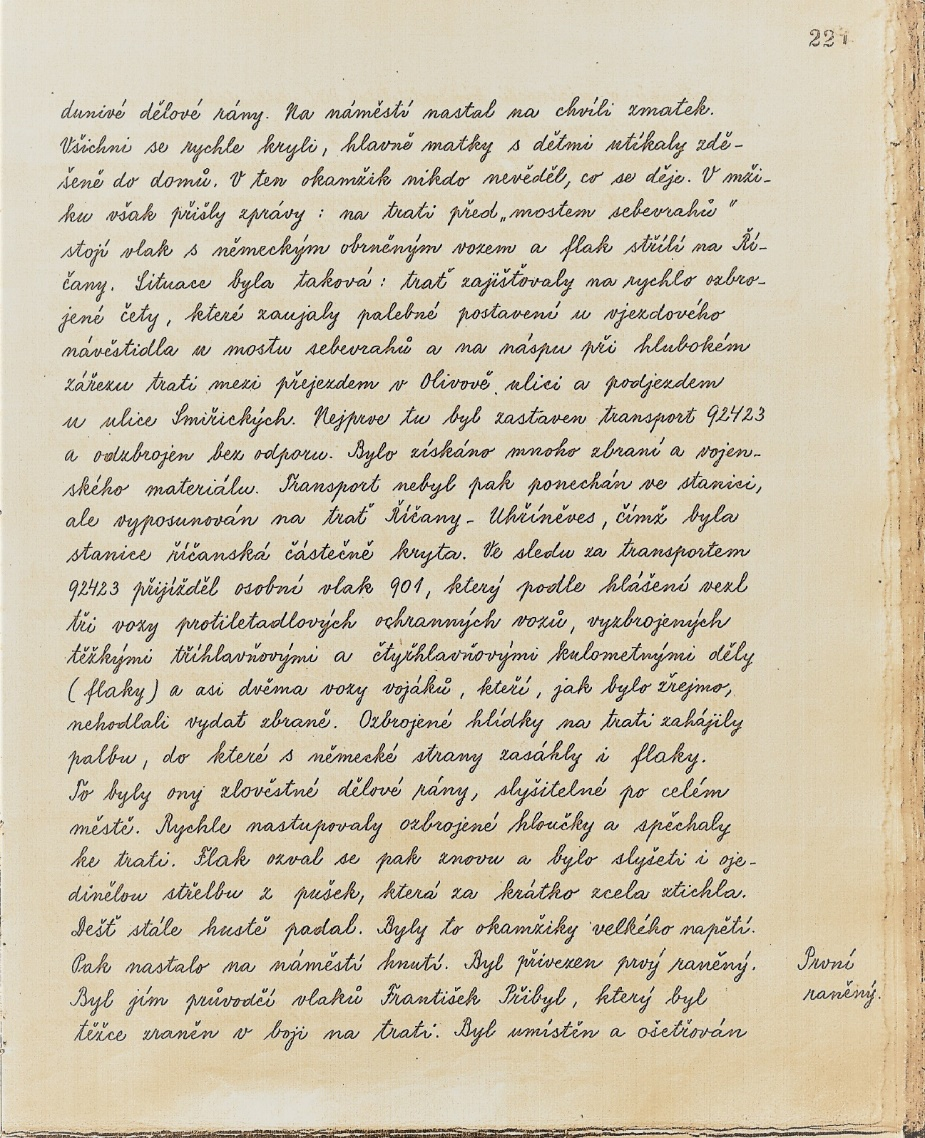 221
dunivé dělové rány. Na náměstí nastal na chvíli zmatek.
Všichni se rychle kryli, hlavně matky s dětmi utíkaly zdě-
šeně do domů. V ten okamžik nikdo nevěděl, co se děje. V mži-
ku však přišly zprávy : na trati před „mostem sebevrahů"
stojí vlak s německým obrněným vozem a flak střílí na Ří-
čany. Situace byla taková : trať zajišťovaly na rychlo ozbro-
jené čety, které zaujaly palebné postavení u vjezdového
návěstidla u mostu sebevrahů a na náspu při hlubokém
zářezu trati mezi přejezdem v Olivově ulici a podjezdem
u ulice Smiřických. Nejprve tu byl zastaven transport 92423
a odzbrojen bez odporu. Bylo získáno mnoho zbraní a vojen-
ského materiálu. Transport nebyl pak ponechán ve stanici,
ale vyposunován na trať Říčany - Uhříněves, čímž byla
stanice říčanská částečně kryta. Ve sledu za transportem
92423 přijížděl osobní vlak 901, který podle hlášení vezl
tři vozy protiletadlových ochranných vozů, vyzbrojených
těžkými tříhlavňovými a čtyřhlavňovými kulometnými děly
(flaky) a asi dvěma vozy vojáků, kteří, jak bylo zřejmo,
nehodlali vydat zbraně. Ozbrojené hlídky na trati zahájily
palbu, do které s německé strany zasáhly i flaky.
To byly ony zlověstné dělové rány, slyšitelné po celém
městě. Rychle nastupovaly ozbrojené hloučky a spěchaly
ke trati. Flak ozval se pak znovu a bylo slyšeti i oje-
dinělou střelbu z pušek, která za krátko zcela ztichla.
Dešť stále hustě padal. Byly to okamžiky velkého napětí.
Pak nastalo na náměstí hnutí. Byl přivezen prvý raněný.
Byl jím průvodčí vlaků František Přibyl, který byl
těžce zraněn v boji na trati. Byl umístěn a ošetřován
První
raněný.